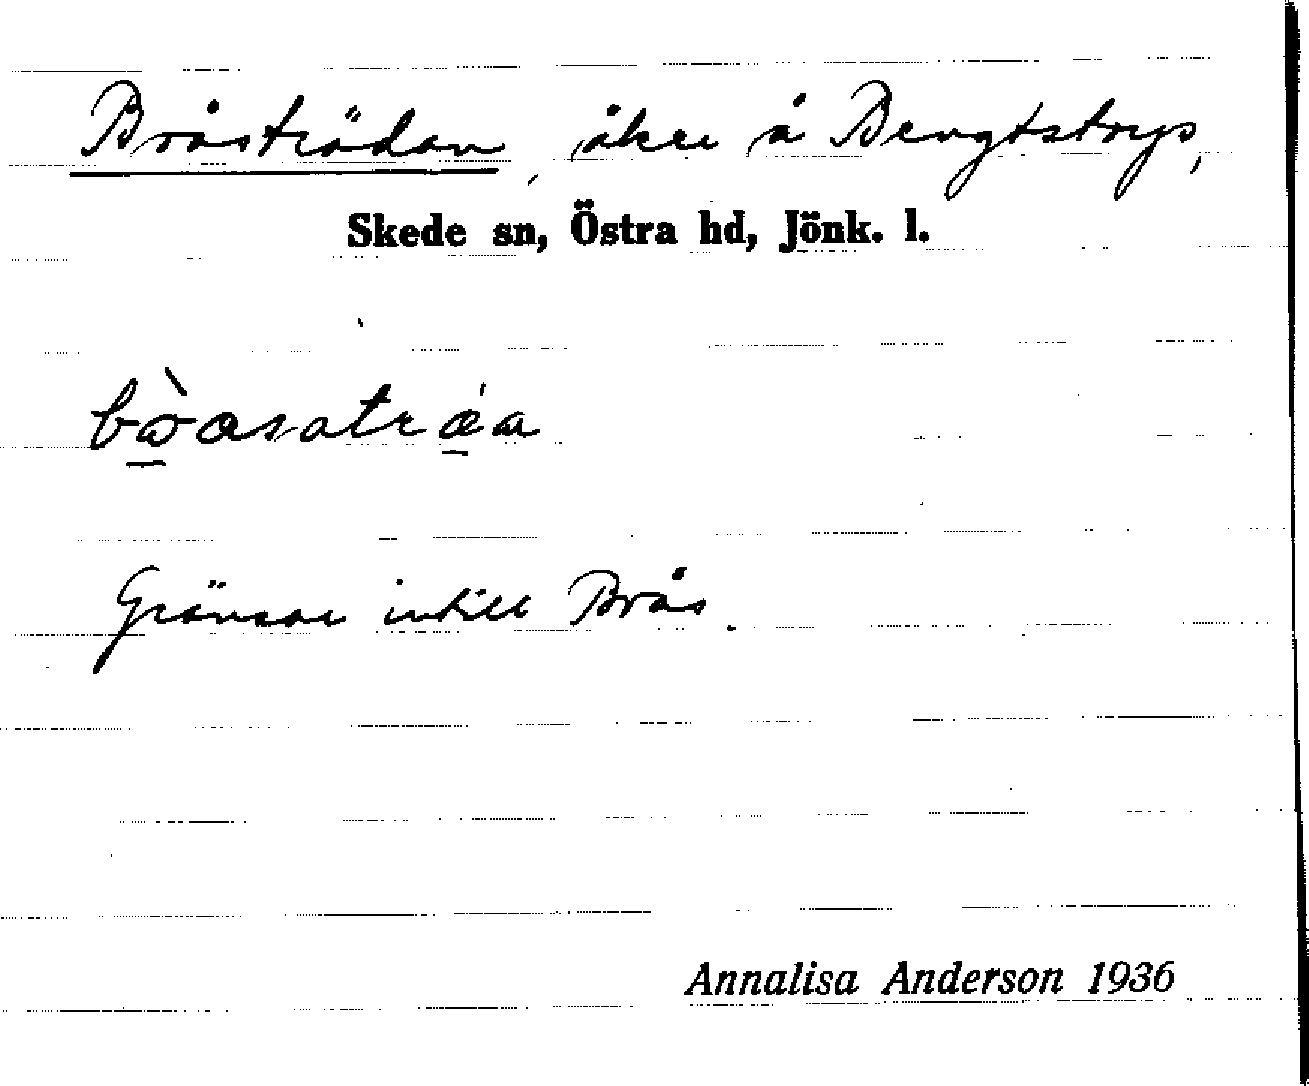 Bråströdan, åker å Bengtstorp,
Skede sn, Östra hd, Jönk. l.
Gränsar intill Brås.
Annalisa Anderson 1936